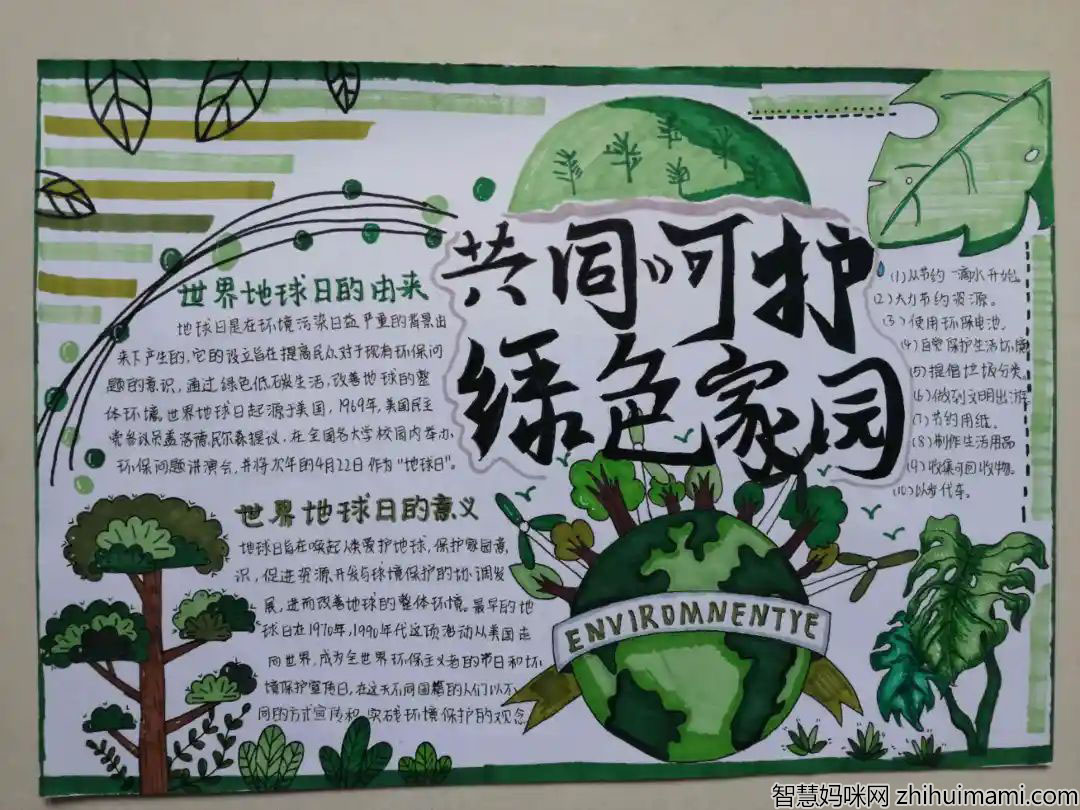 共同呵护
绿色家园
世界地球日的由来
地球日是在环境污染日益严重的背景由
来下产生的,它的设立旨在提高民众对于现有环保问
题的意识,通过绿色低碳生活,改善地球的整
体环境。世界地球日起源于美国,1969年,美国民主
党参议员盖洛德.尼尔森提议,在全国各大学校园内举办
环保问题讲演会,并将次年的4月22日作为“地球日”。
世界地球日的意义
地球日旨在唤起人类爱护地球,保护家园意
识,促进资源开发与环境保护的协调发
展,进而改善地球的整体环境。最早的地
球日在1970年,1990年代这项活动从美国走
向世界,成为全世界环保主义者的节日和环
境保护宣传日,在这天不同国籍的人们以不
同的方式宣传和实践环境保护的观念
(1)从节约一滴水开始。
(2)大力节约资源。
(3)使用环保电池。
(4)自觉保护生活环境
(5)提倡垃圾分类。
(6)做到文明出游
(7)节约用纸。
(8)制作生活用品
(9)收集可回收物。
(10)以步代车。
ENVIROMNENTYE
智慧妈咪网 zhihuimami.com